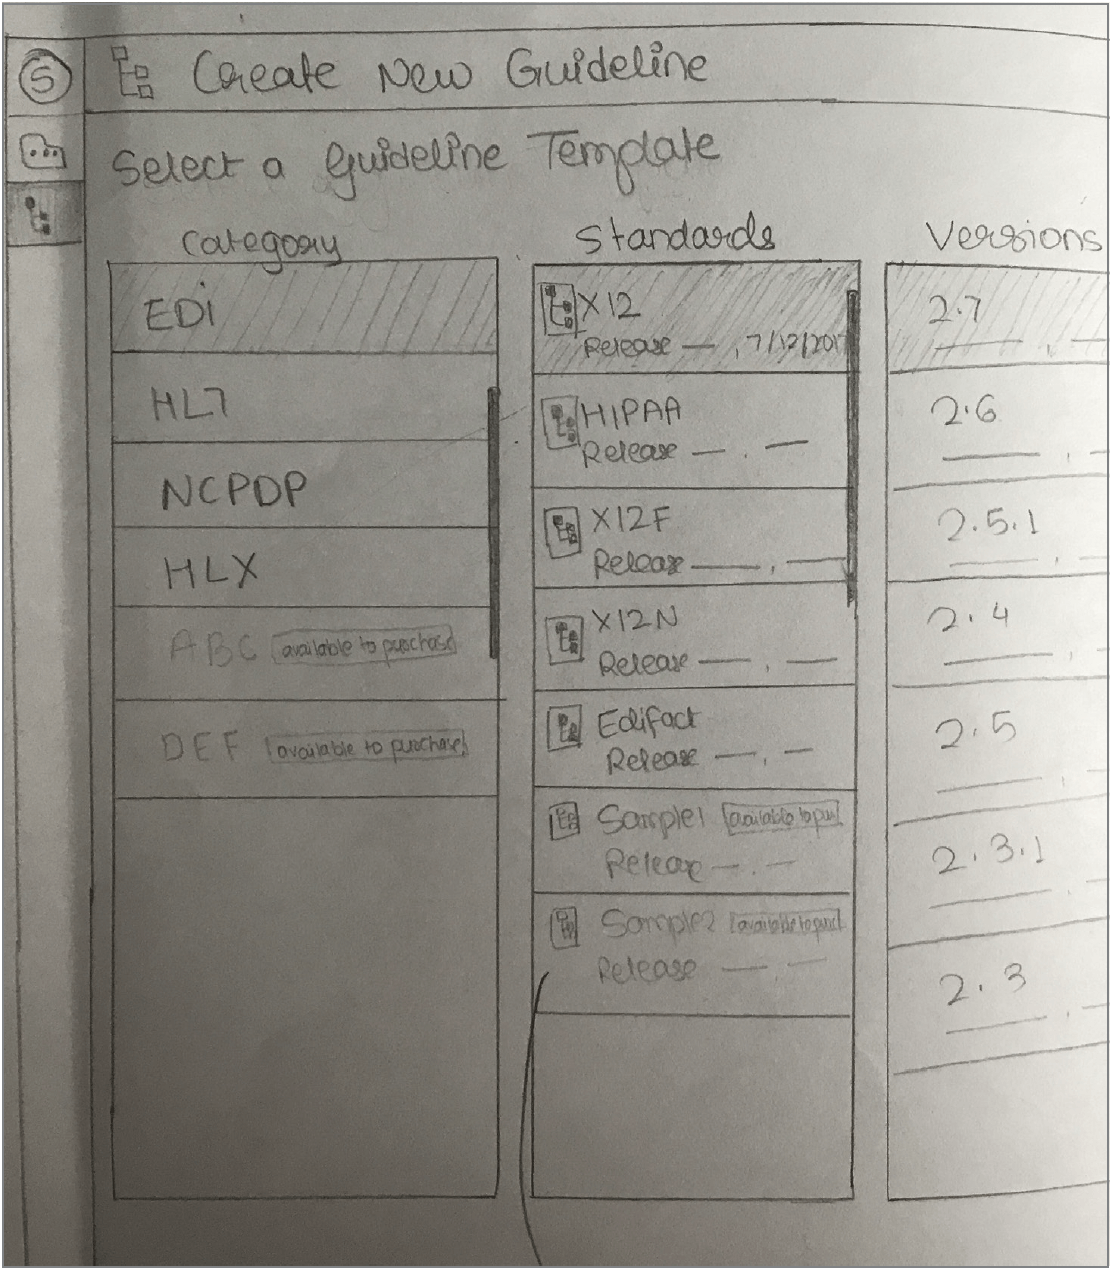 S
Create New Guideline
Select a Guideline Template
Category
EDI
HL7
NCPDP
HLX
ABC available to purchase
DEF available to purchase
Standards
X12
Release — , 7/12/201
HIPAA
Release — . —
X12F
Release — , —
X12N
Release — , —
Edifact
Release — , —
Sample1 available to pur
Release — . —
Sample2 available to purc
Release — , —
Versions
2.7
2.6
2.5.1
2.4
2.5
2.3.1
2.3